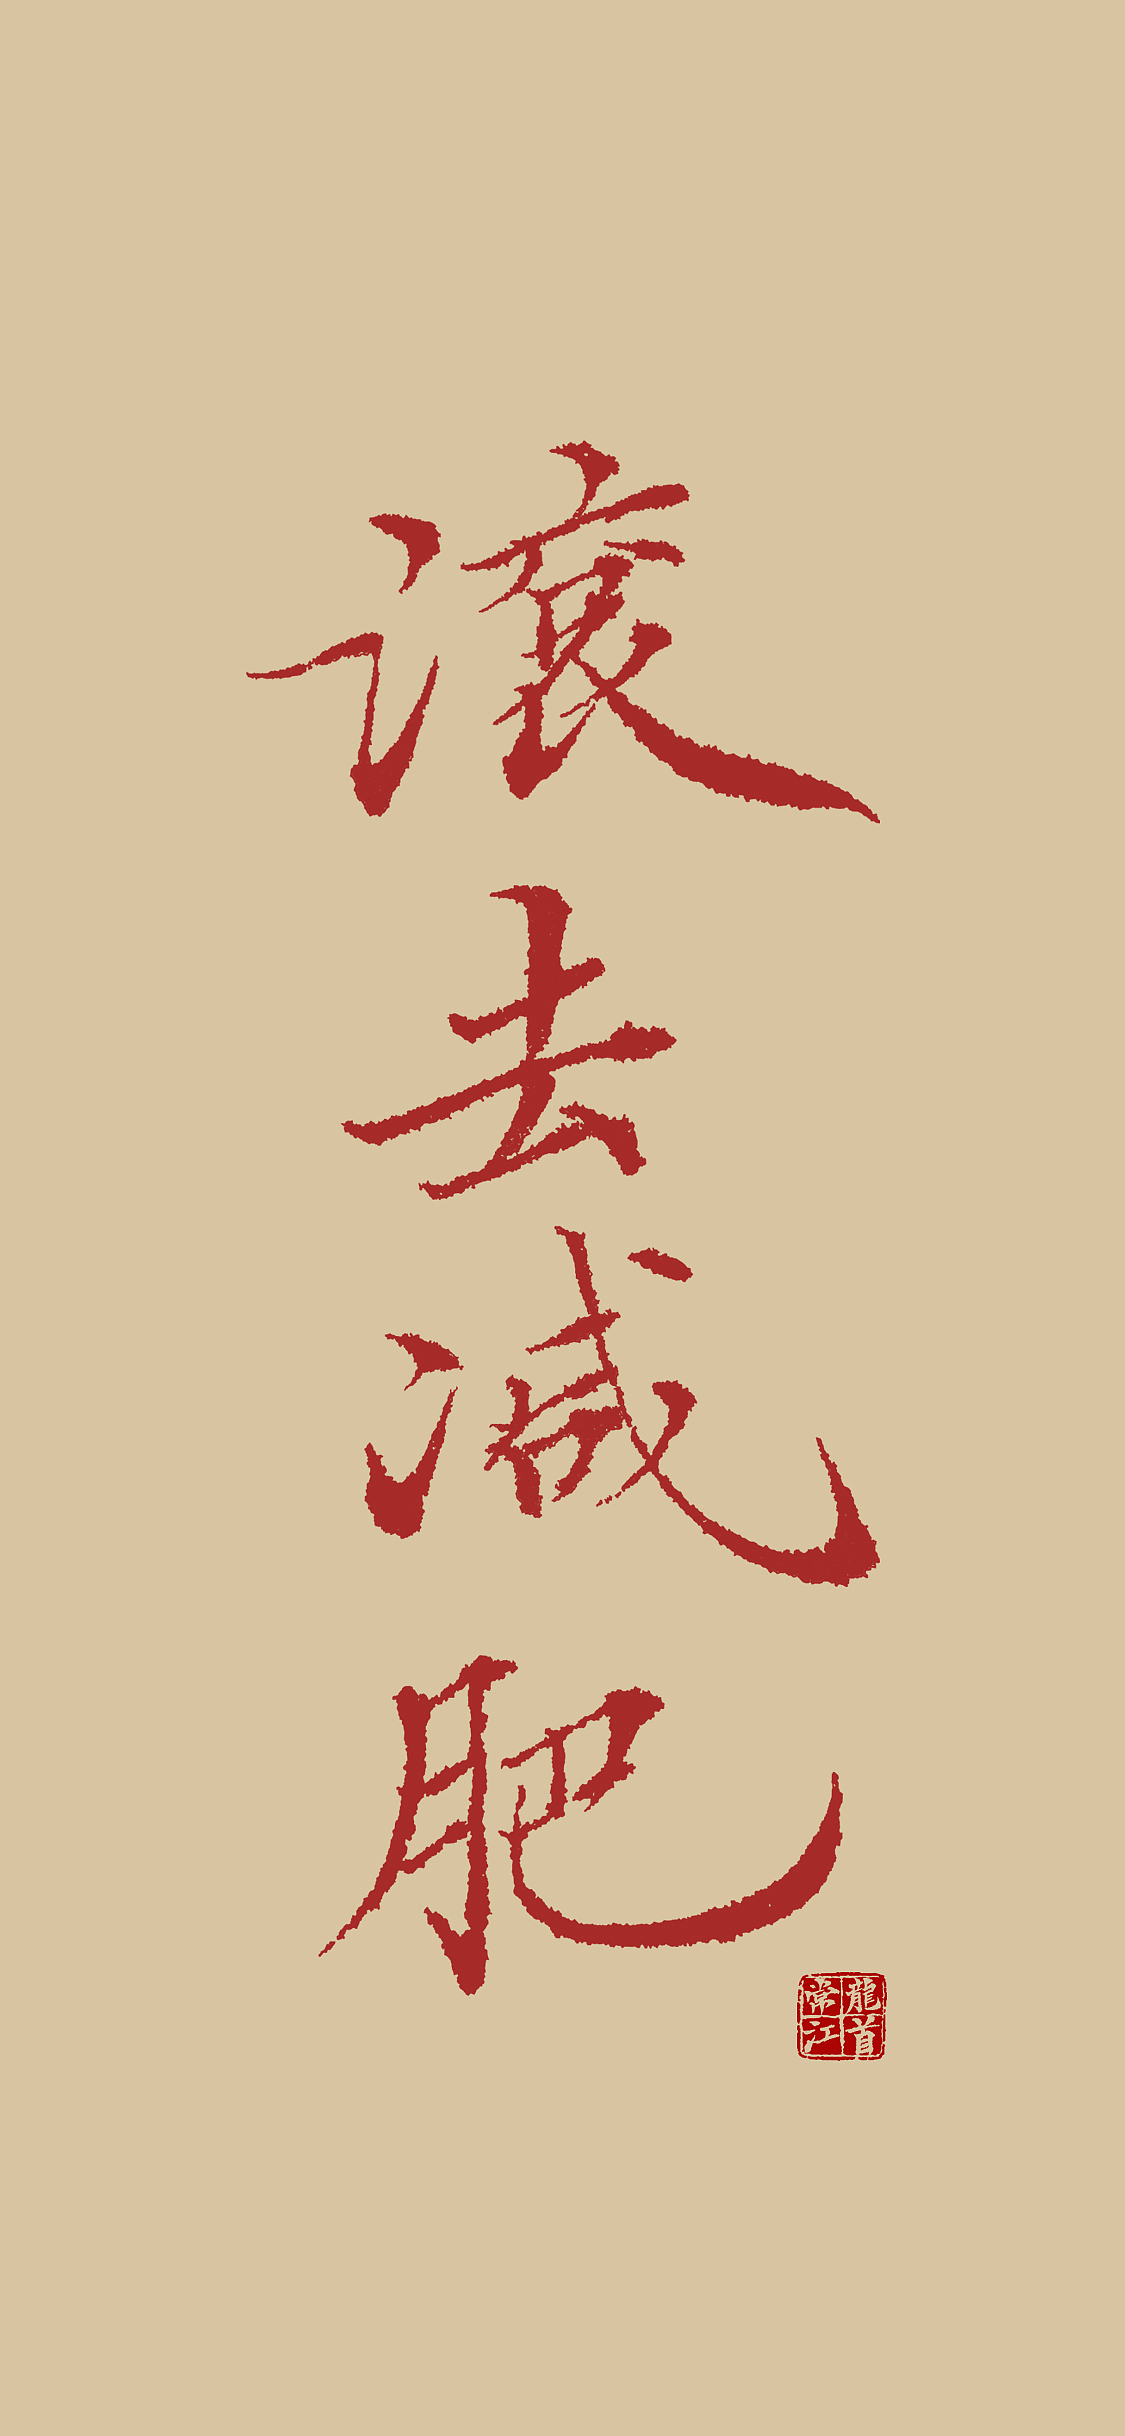 滚去减肥
龍首
常江